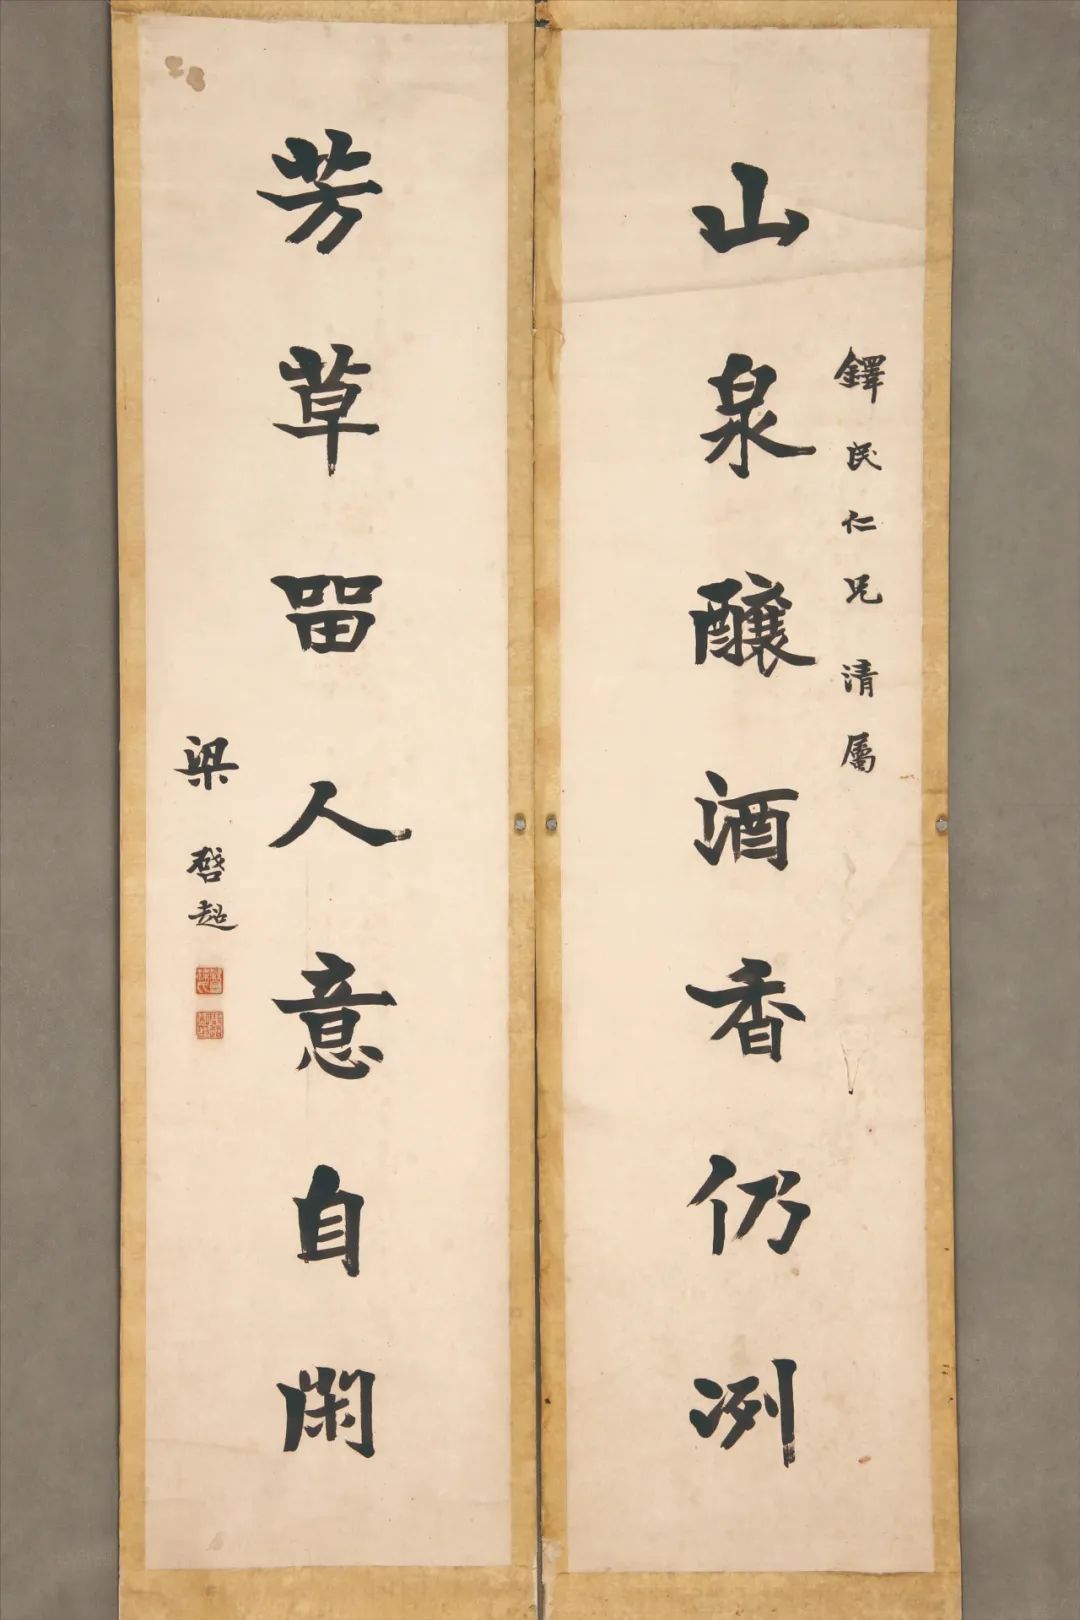 鐸民仁兄清屬
山泉釀酒香仍洌
芳草留人意自閑
梁啓超